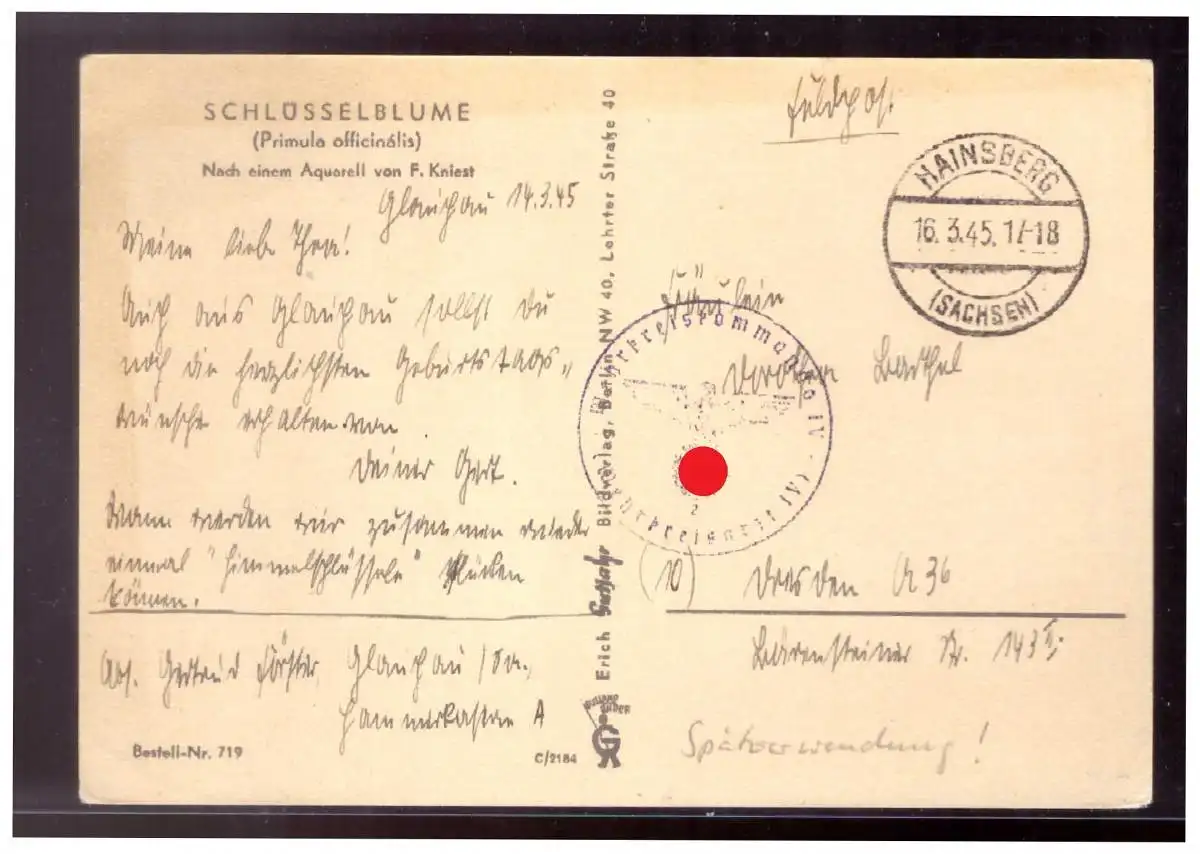 SCHLÜSSELBLUME
(Primula officinális)
Nach einem Aquarell von F. Kniest
Glauchau 14.3.45
Meine liebe Thea!
Auch aus Glauchau sollst Du
noch die herzlichsten Geburtstags-
wünsche erhalten von
Deiner Gert.
Wann werden wir zusammen wieder
einmal "Himmelschlüssele" pflücken
können.
Abs. Gertrud Förster Glauchau /Sa.,
Bestell-Nr. 719
C/2184
Erich Gutjahr Bildverlag, Berlin NW 40, Lehrter Straße 40
Feldpost
HAINSBERG
16.3.45.17-18
(SACHSEN)
Fräulein
Dorothea Barthel
Wehrkreiskommando IV
2
(10) Dresden A 36
Bärensteiner Str. 143 II
Spätverwendung!